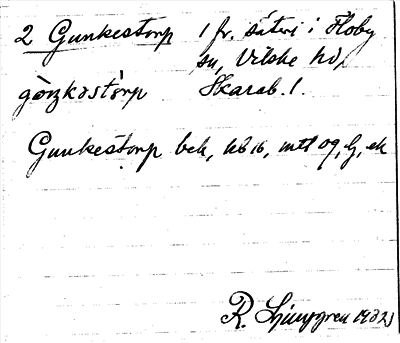 2 Gunkestorp 1 fr. säteri i Floby
sn, Vilske hd,
gòŋkastòrp Skarab. l.
Gunkestorp bek, kb 16, mtl og, lj, ek
R. Ljunggren 1932